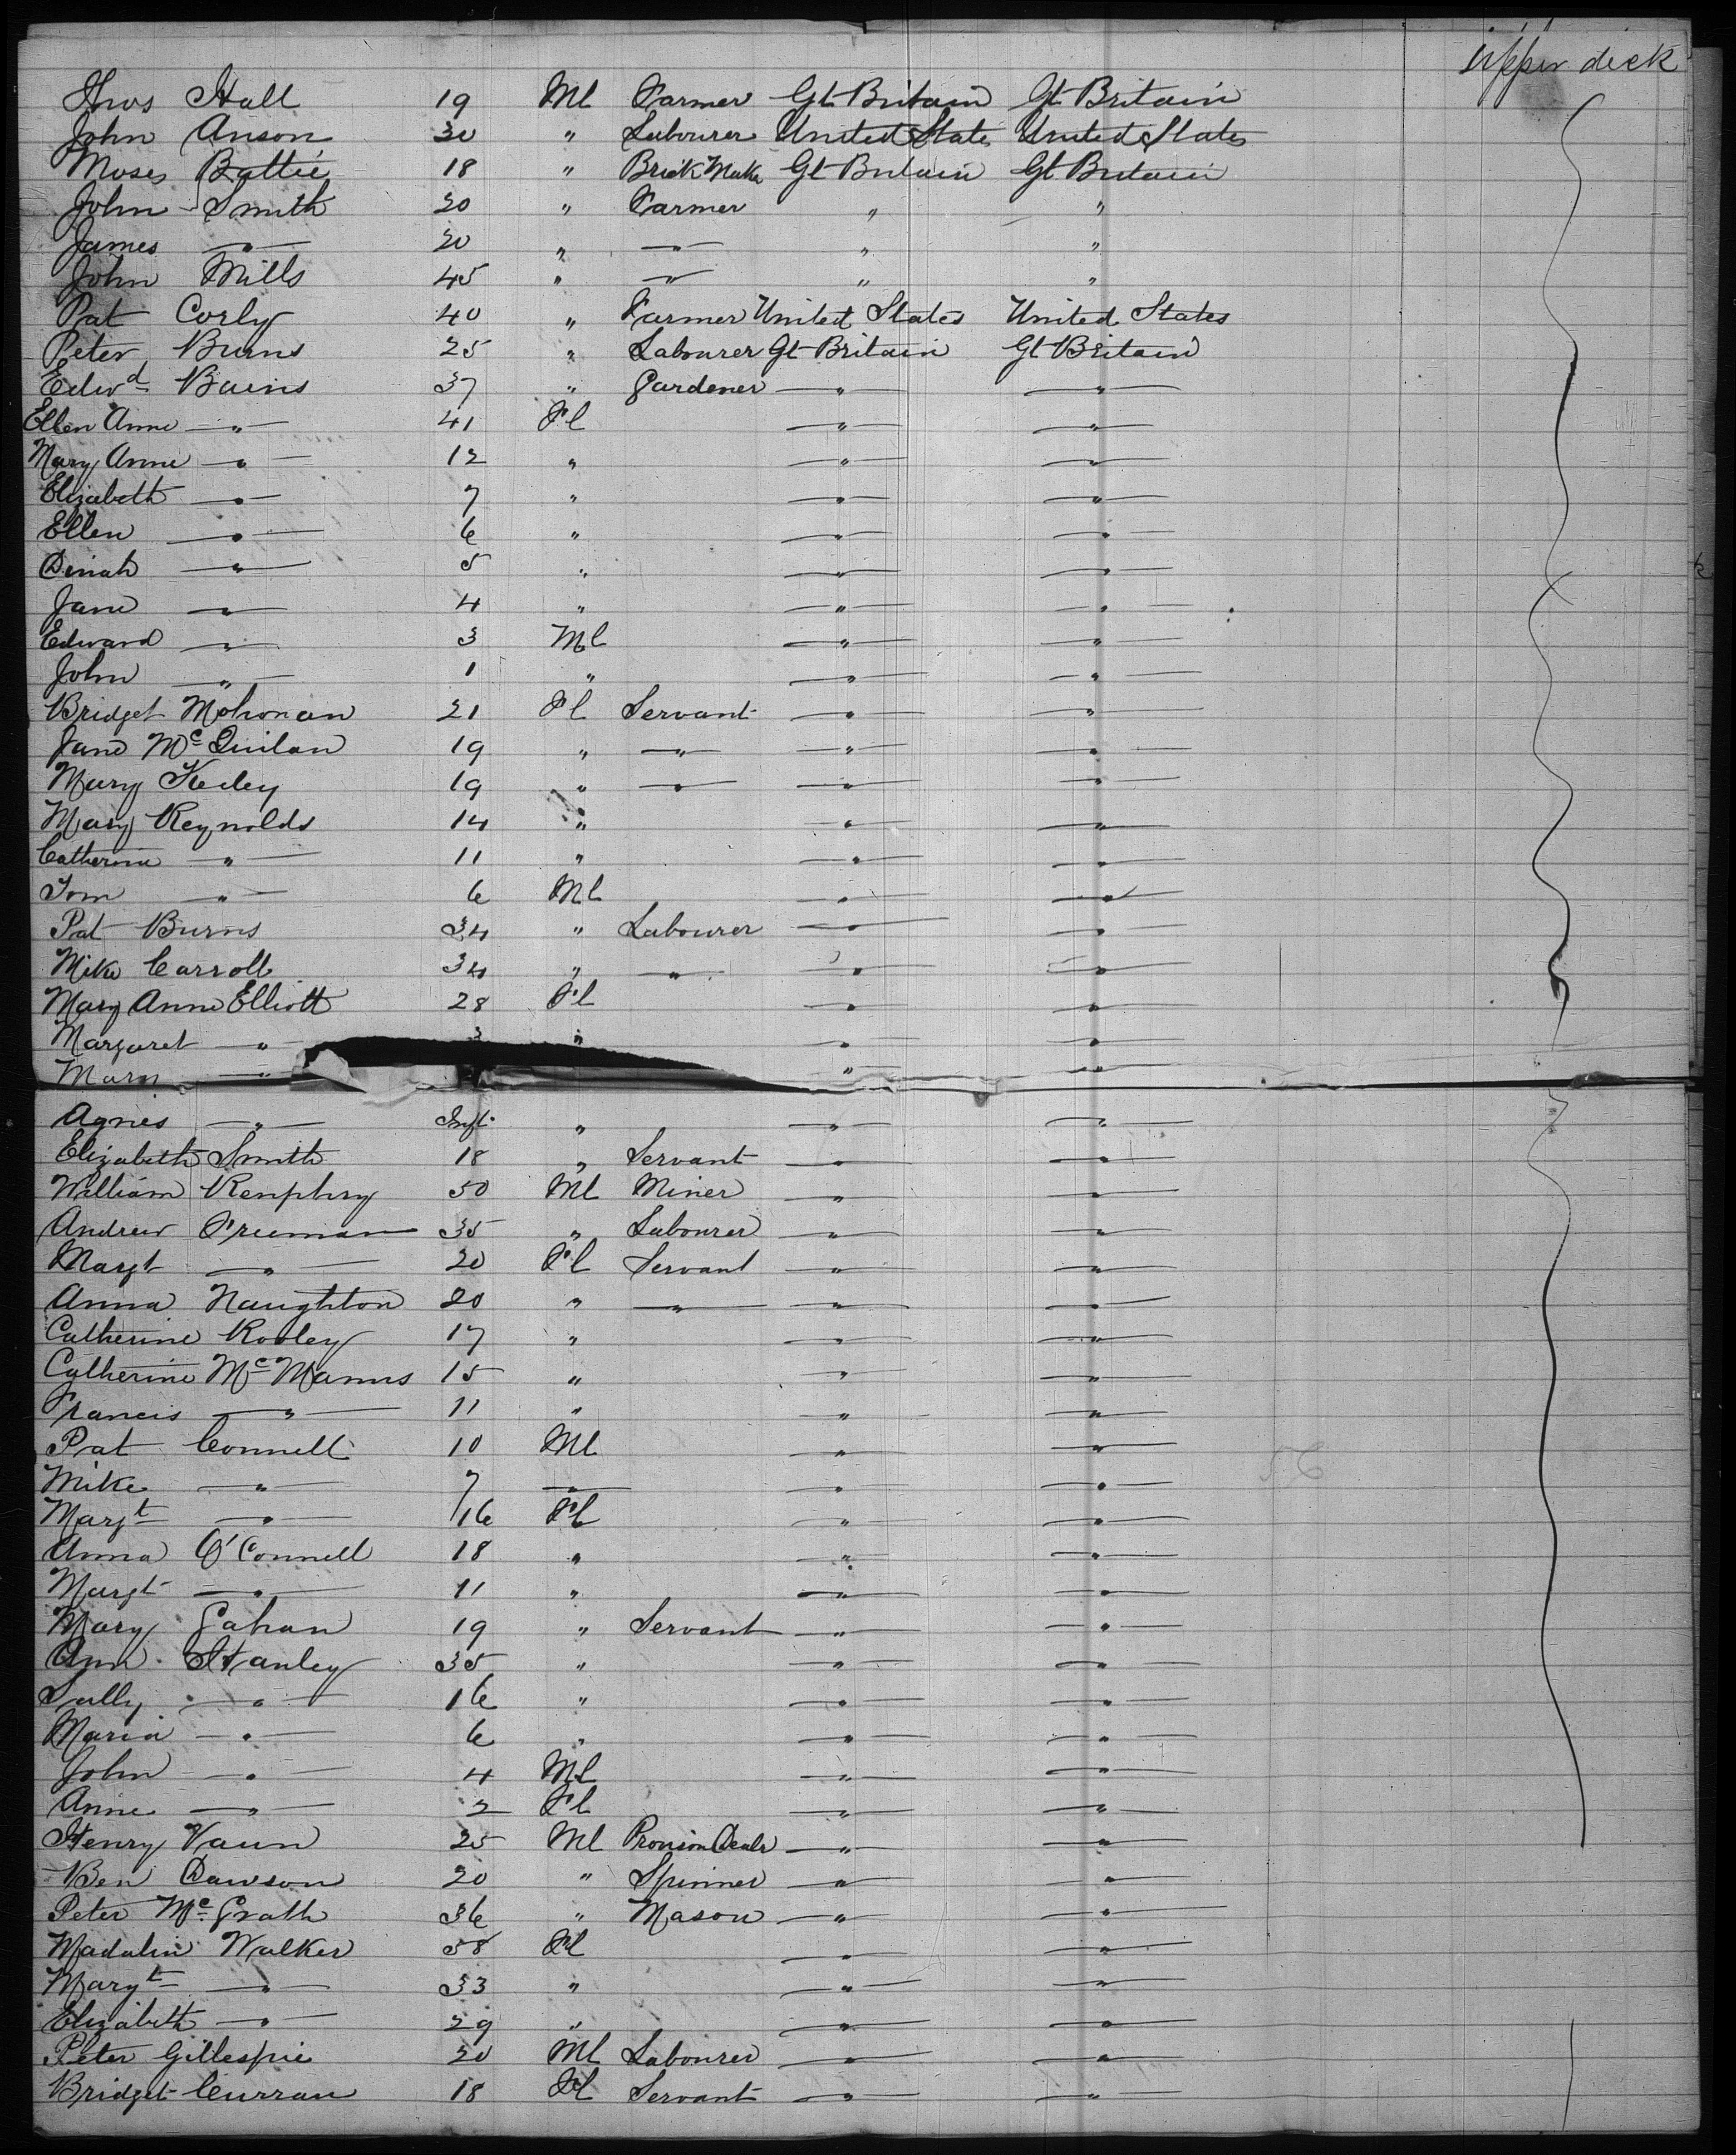 upper deck
Thos Hall 19 Ml Farmer Gt Britain Gt Britain
John Anson 30 " Labourer United States United States
Moses Battie 18 " Brick Make Gt Britain Gt Britain
John Smith 20 " Farmer " "
James " 20 " " " "
John Mills 45 " " " "
Pat Corly 40 " Farmer United States United States
Peter Burns 25 " Labourer Gt Britain Gt Britain
Edwd Bains 37 " Gardener " "
Ellen Anne " 41 Fl " "
Mary Anne " 12 " " "
Elizabeth " 7 " " "
Ellen " 6 " " "
Dinah " 5 " " "
Jane " 4 " " "
Edward " 3 Ml " "
John " 1 " " "
Bridget Mohonan 21 Fl Servant " "
Jane McQuilan 19 " " " "
Mary 19 " " " "
Mary Reynolds 14 " " "
Catherine " 11 " " "
Tom " 6 Ml " "
Pat Burns 34 " Labourer " "
Mike Carroll 34 " " " "
Mary Anne Elliott 28 Fl " "
Margaret " 3 " " "
Mary " " "
Agnes " Inft " " "
Elizabeth Smith 18 " Servant " "
William Renphry 50 Ml Miner " "
Andrew Freeman 35 " Labourer " "
Margt " 20 Fl Servant " "
Anna Naughton 20 " " " "
Catherine Rooley 17 " " "
Catherine McManus 15 " " "
Francis " 11 " " "
Pat Connell 10 Ml " "
Mike " 7 " " "
Margt " 16 Fl " "
Anna O'Connell 18 " " "
Margt " 11 " " "
Mary Gahan 19 " Servant " "
Ann Stanley 35 " " "
Sally " 16 " " "
Maria " 6 " " "
John " 4 Ml " "
Anne " 2 Fl " "
Henry Vaun 25 Ml Provision Dealr " "
Ben Dawson 20 " Spinner " "
Peter McGrath 36 " Mason " "
Madalin Walker 58 Fl " "
Margt " 33 " " "
Elizabeth " 29 " " "
Peter Gillespie 20 Ml Labourer " "
Bridget Curran 18 Fl Servant " "